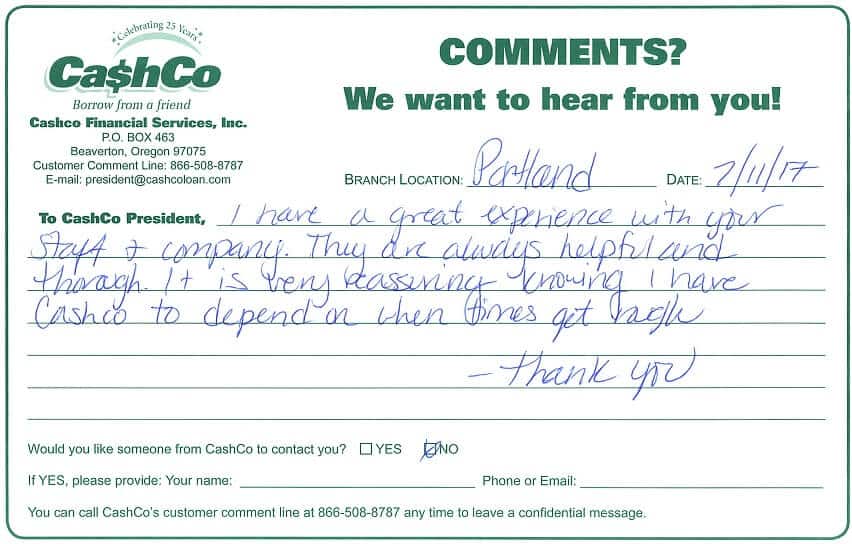 Celebrating 25 Years
Ca$hCo
Borrow from a friend
Cashco Financial Services, Inc.
P.O. BOX 463
Beaverton, Oregon 97075
Customer Comment Line: 866-508-8787
E-mail: president@cashcoloan.com
COMMENTS?
We want to hear from you!
BRANCH LOCATION: Portland DATE: 7/11/17
To CashCo President, I have a great experience with your
staff & company. They are always helpful and
thorough. It is very reassuring knowing I have
Cashco to depend on when times get rough
- Thank you
Would you like someone from CashCo to contact you? YES NO
If YES, please provide: Your name: Phone or Email:
You can call CashCo's customer comment line at 866-508-8787 any time to leave a confidential message.